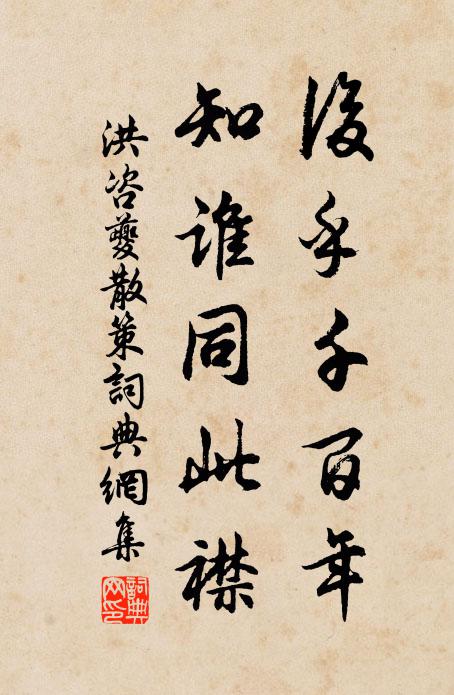 後乎千百年
知誰同此襟
洪咨夔散策詞典網集
詞典網印